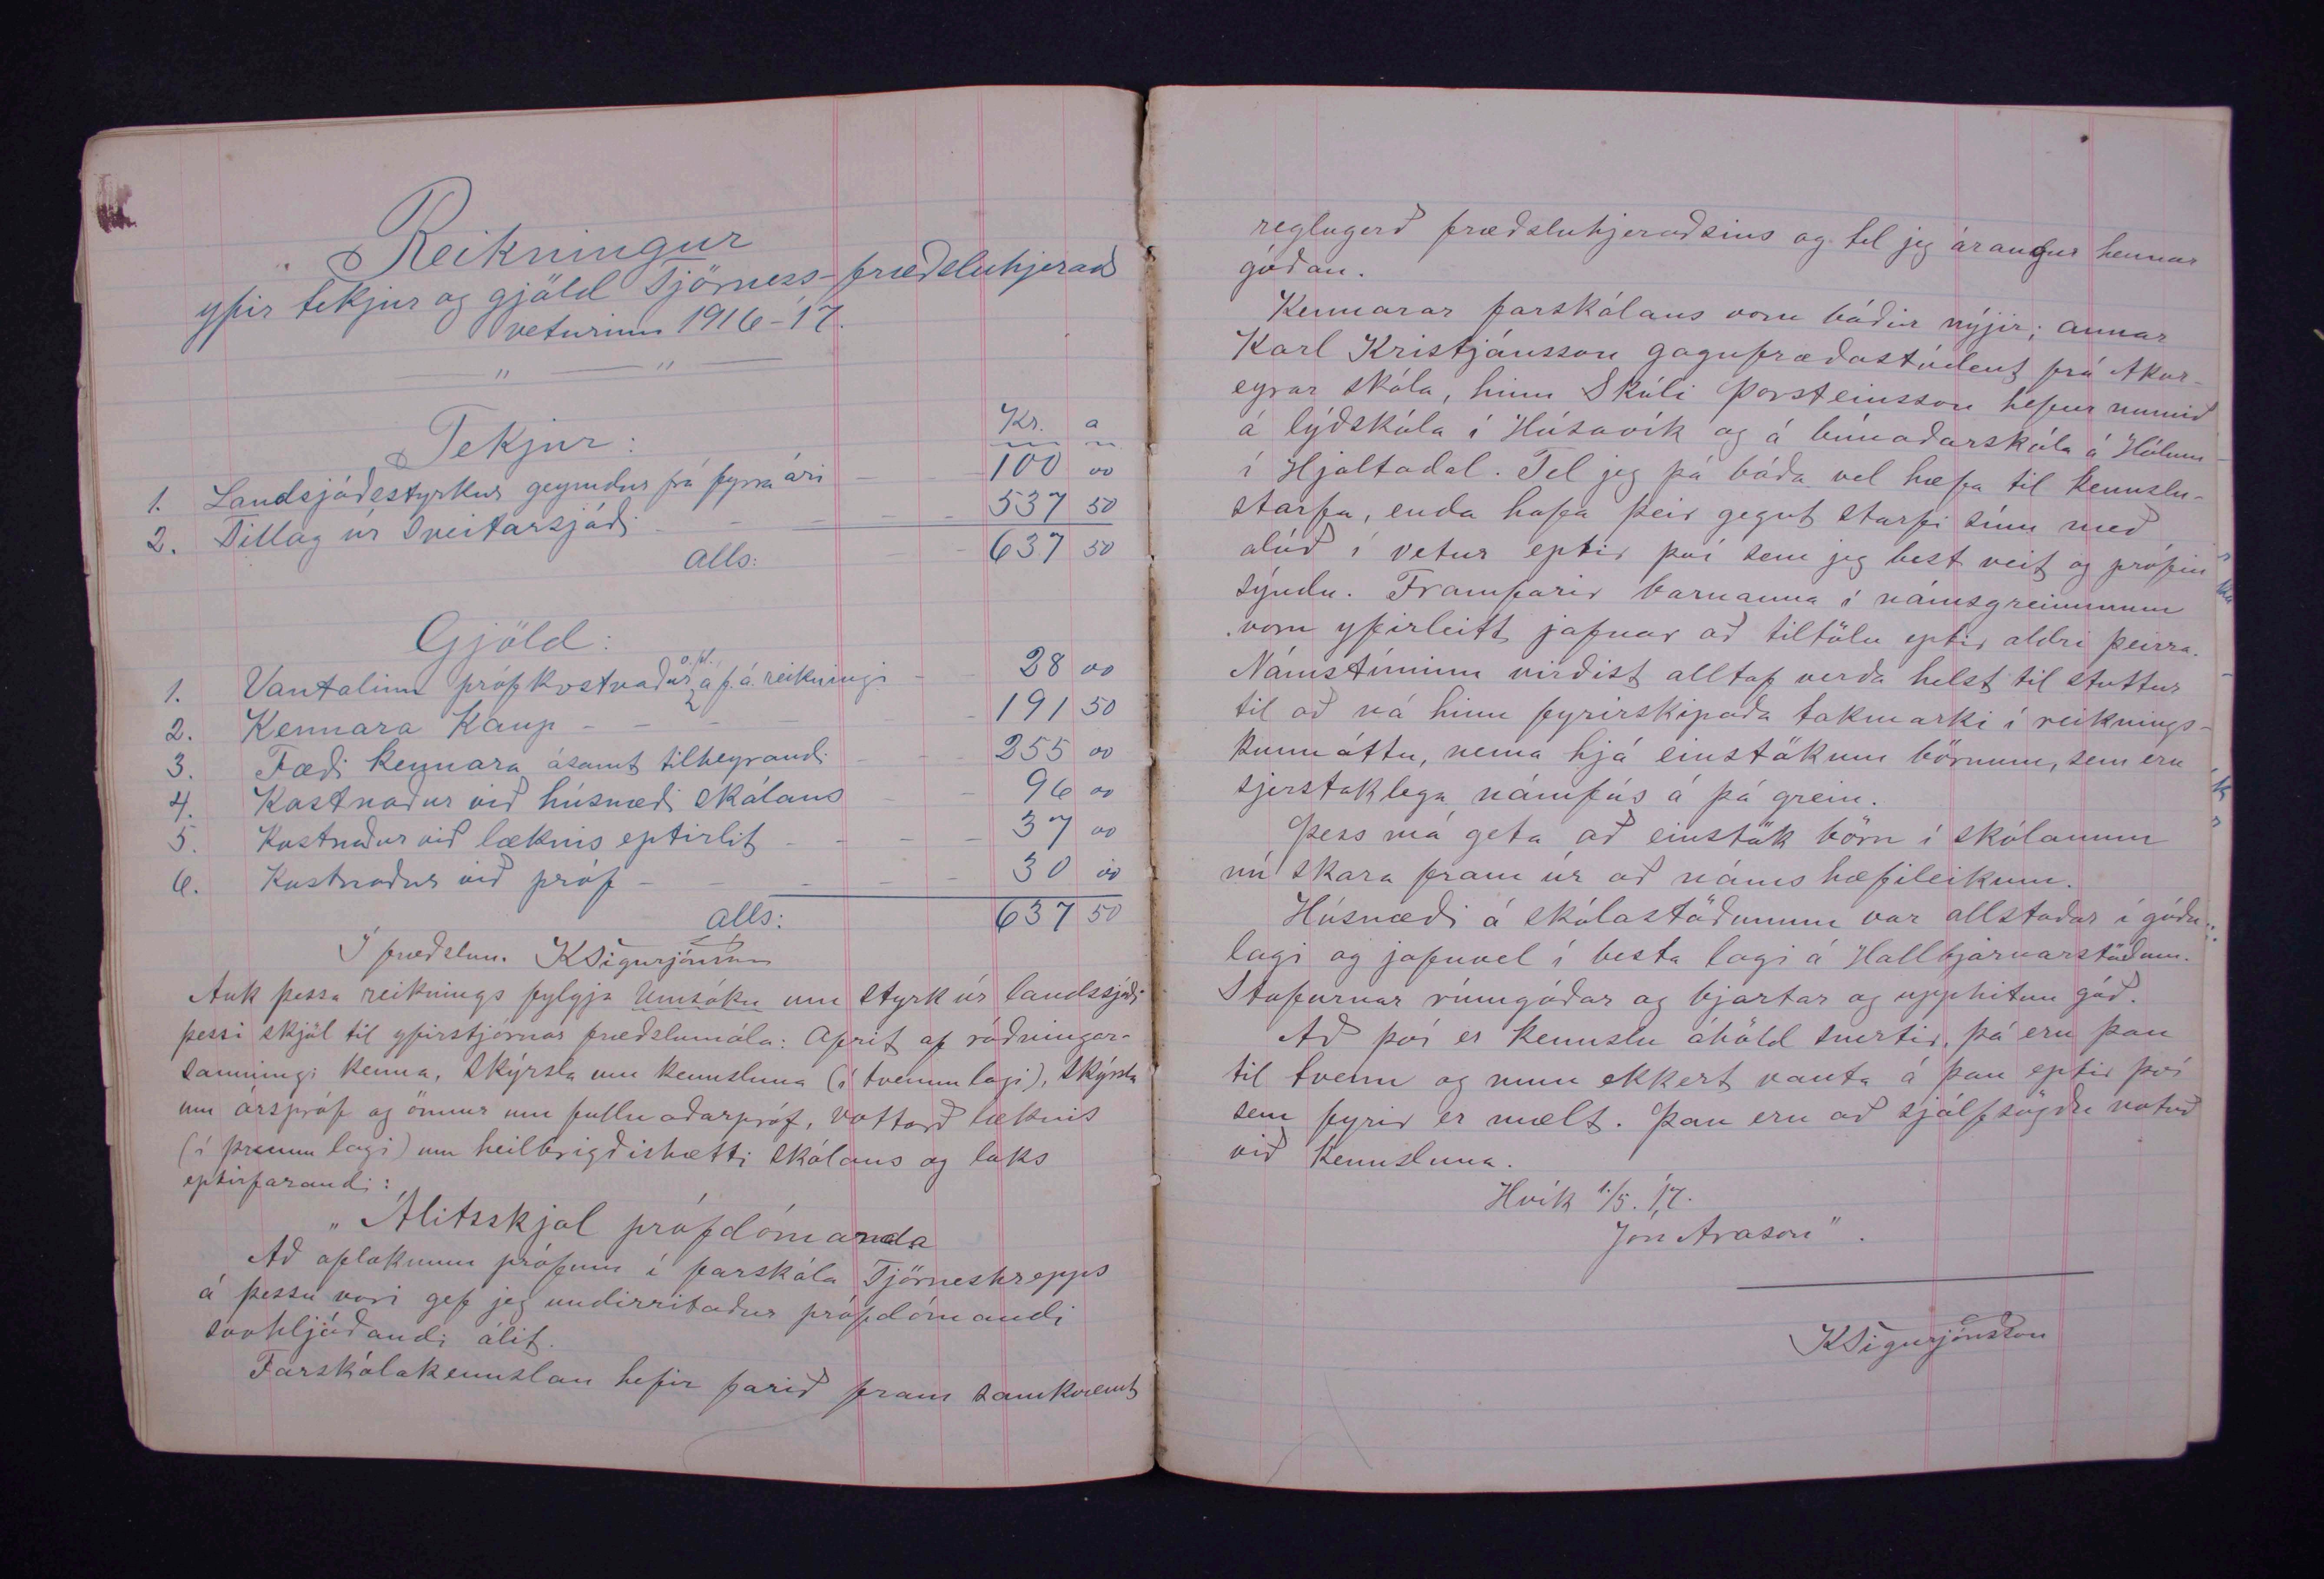 Reikningur
yfir tekjur og gjöld Tjörness-fræðsluhjerað
veturinn 1916-'17.
Tekjur:
Kr. a
1. Landsjóðsstyrkur geymdur frá fyrra ári - - 100 00
2. Tillag úr Sveitarsjóði - - - - - 537 50
Alls: - - 637 50
Gjöld:
1. Vantalinn prófkostnaður o.fl. á f.á. reikningi - - 28 00
2. Kennara Kaup - - - - - 191 50
3. Fæði kennara ásamt tilheyrandi - - - 255 00
4. Kostnaður við húsnæði skólans - - 96 00
5. Kostnaður við læknis eptirlit - - - - 37 00
6. Kostnaður við próf - - - - - 30 00
Alls: 637 50
Í fræðslun. KSigurjónsson
Auk þessa reiknings fylgja Umsókn um styrk úr landssjóði
þessi skjöl til yfirstjórnar fræðslumála: Afrit af ráðningar-
samningi kenna, Skýrsla um kennsluna (í tvennu lagi), Skýrsla
um árspróf og önnur um fullnaðarpróf, vottorð læknis
(í þrennu lagi) um heilbrigðishætti skólans og loks
eptirfarandi:
„Álitsskjal prófdómanda
Að afloknum prófum í farskóla Tjörneshrepps
á þessu vori gef jeg undirritaður prófdómandi
svohljóðandi álit.
Farskólakennslan hefir farið fram samkvæmt
reglugerð fræðsluhjeraðsins og tel jeg árangur hennar
góðan.
Kennarar farskólans voru báðir nýjir; annar
Karl Kristjánsson gagnfræðastúdent frá Akur-
eyrar skóla, hinn Skúli Þorsteinsson hefur numið
á lýðskóla í Húsavík og á búnaðarskóla á Hólum
í Hjaltadal. Tel jeg þá báða vel hæfa til kennslu-
starfa, enda hafa þeir gegnt starfi sínu með
alúð í vetur eptir því sem jeg best veit og prófin
sýndu. Framfarir barnanna í námsgreinunum
voru yfirleitt jafnar að tiltölu eptir aldri þeirra.
Námstíminn virðist alltaf verða helst til stuttur
til að ná hinu fyrirskipaða takmarki í reiknings-
kunnáttu, nema hjá einstökum börnum, sem eru
sjerstaklega námfús á þá grein.
Þess má geta að einstök börn í skólanum
nú skara fram úr að náms hæfileikum.
Húsnæði á skólastöðunum var allstaðar í góðu
lagi og jafnvel í besta lagi á Hallbjarnarstöðum.
Stofurnar rúmgóðar og bjartar og upphitun góð.
Að því er kennslu áhöld snertir, þá eru þau
til tvenn og mun ekkert vanta á þau eptir því
sem fyrir er mælt. Þau eru að sjálfsögðu notuð
við kennsluna.
Hvík 1/5. '17.
Jón Arason".
KSigurjónsson